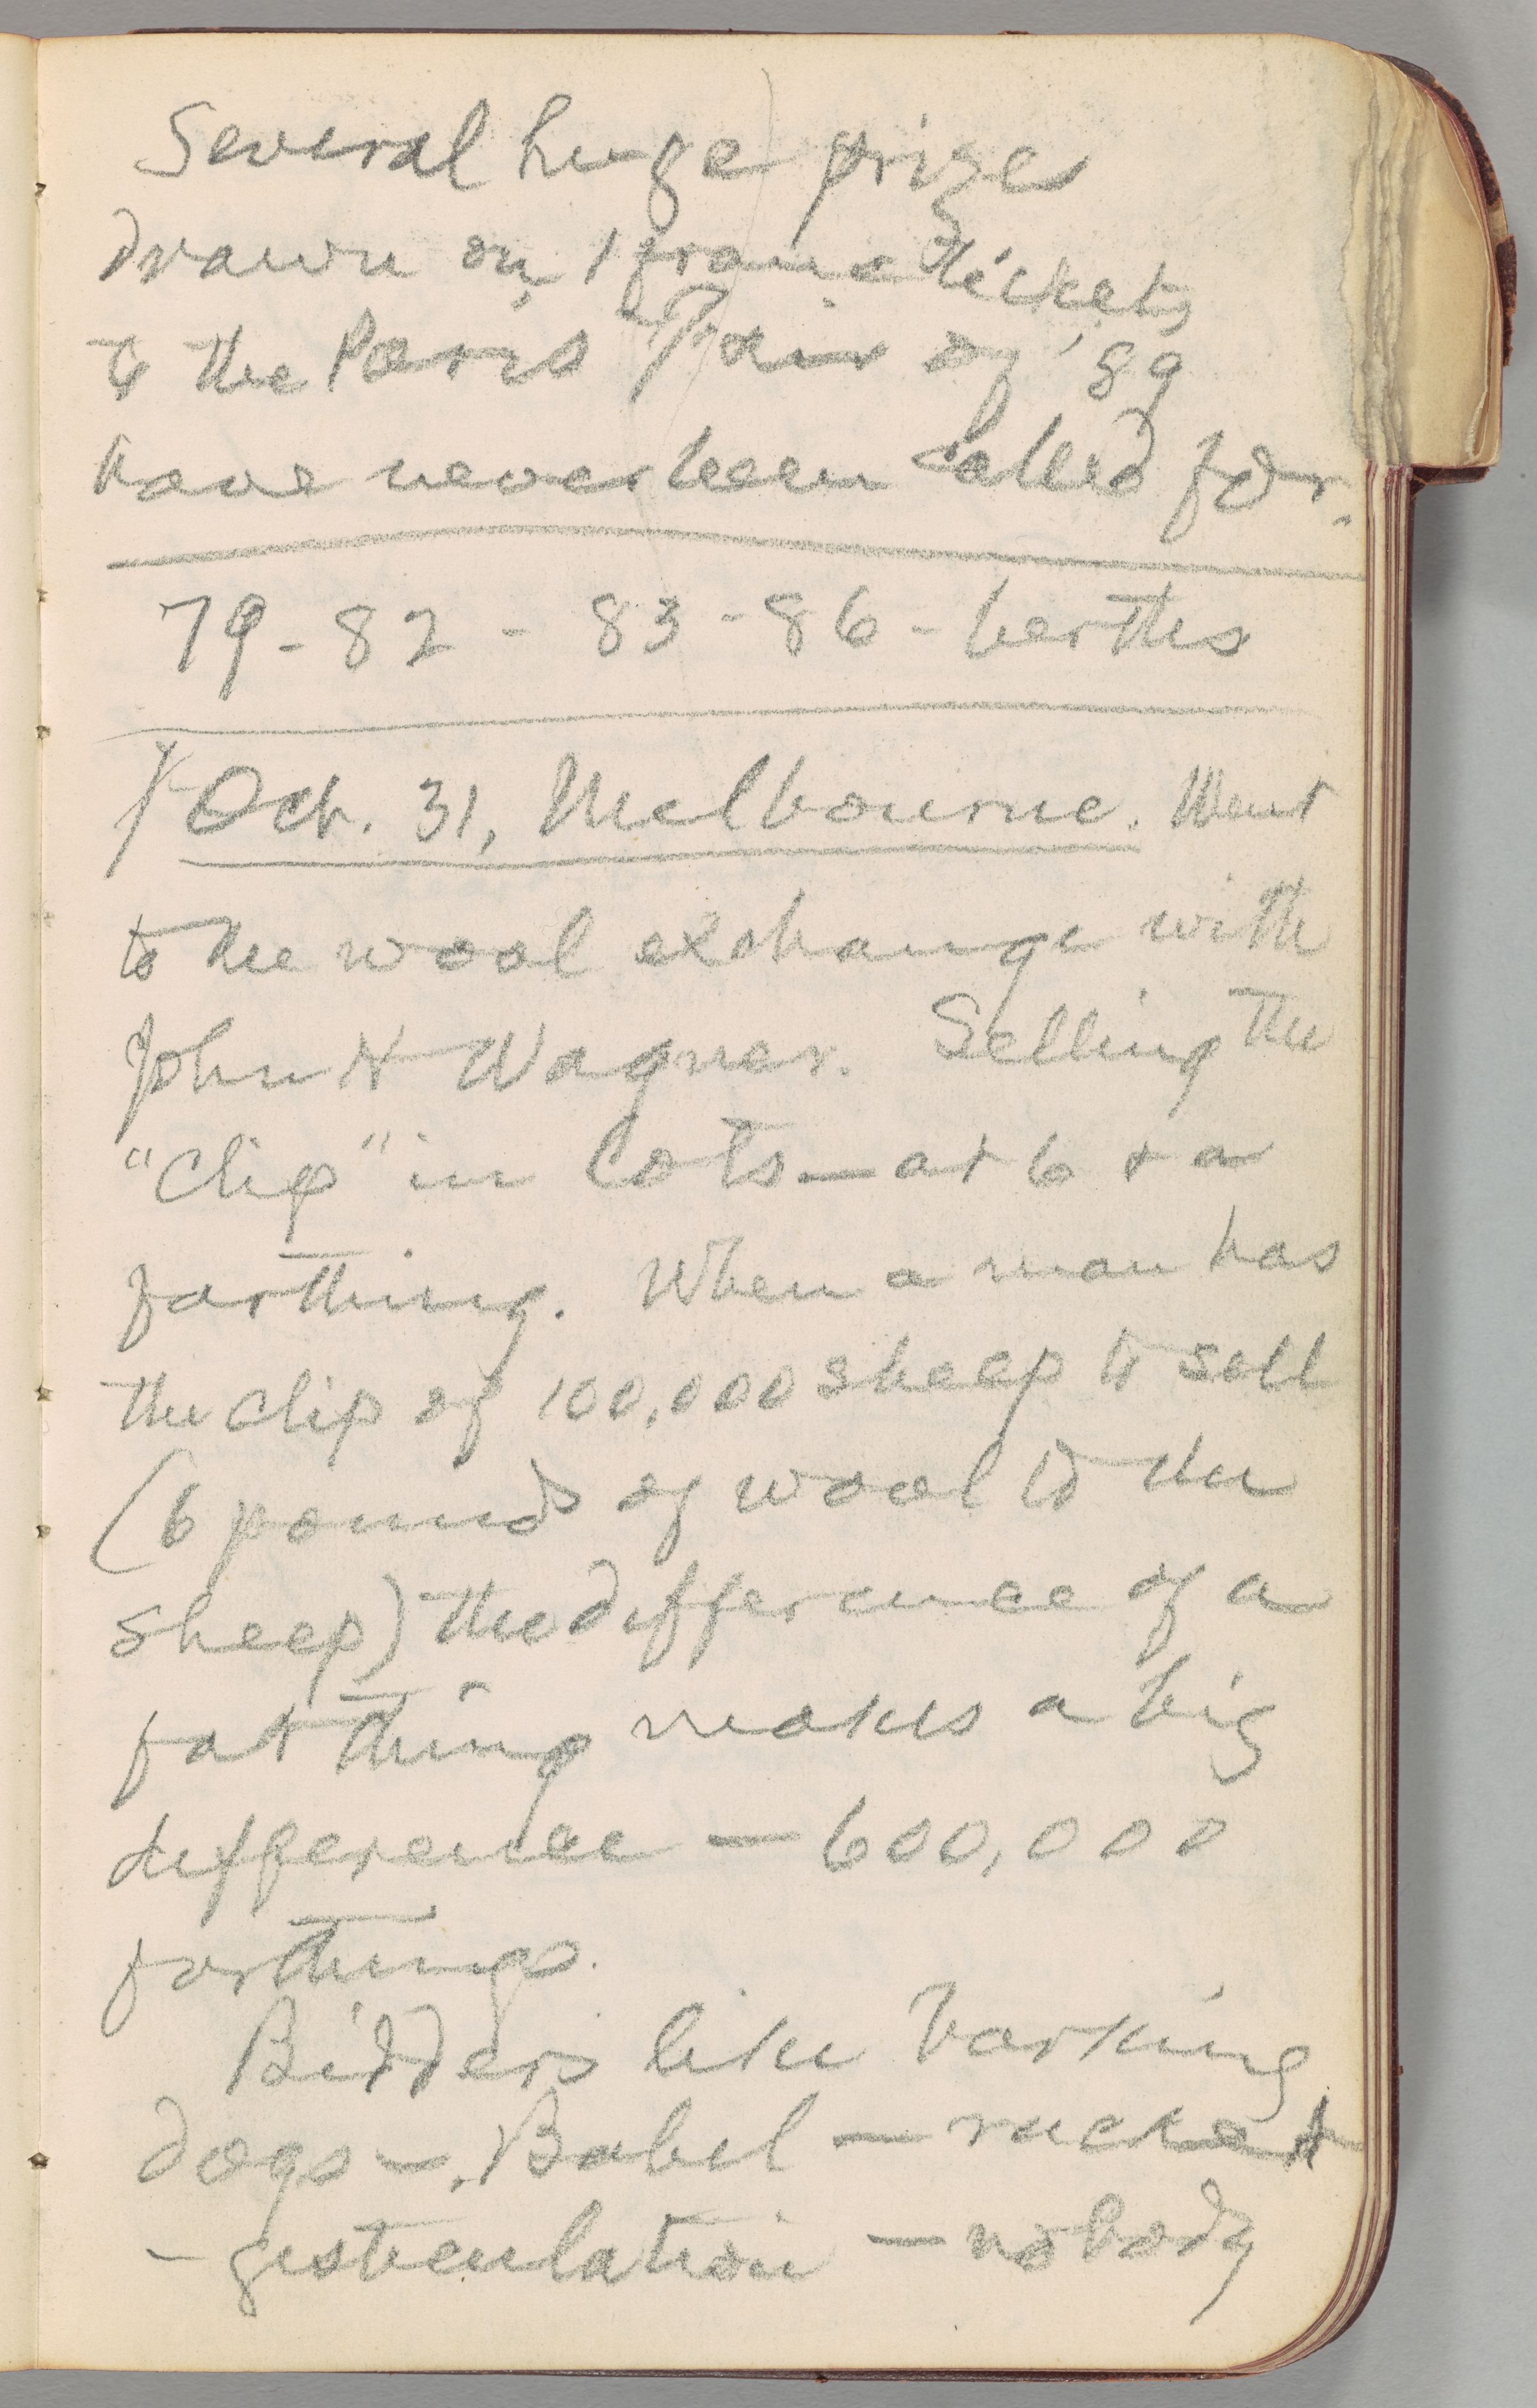 Several huge prizes
drawn on 1 franc tickets
to the Paris Fair of '89
have never been called for.
79 - 82 - 83 - 86 - berths
Oct. 31, Melbourne. Went
to the wool exchange with
John H Wagner. Selling the
"clip" in lots — at 6 & a
farthing. When a man has
the clip of 100,000 sheep to sell
(6 pounds of wool to the
sheep) the difference of a
farthing makes a big
difference — 600,000
farthings.
Bidders like barking
dogs —. Babel — racket
- gesticulation — nobody